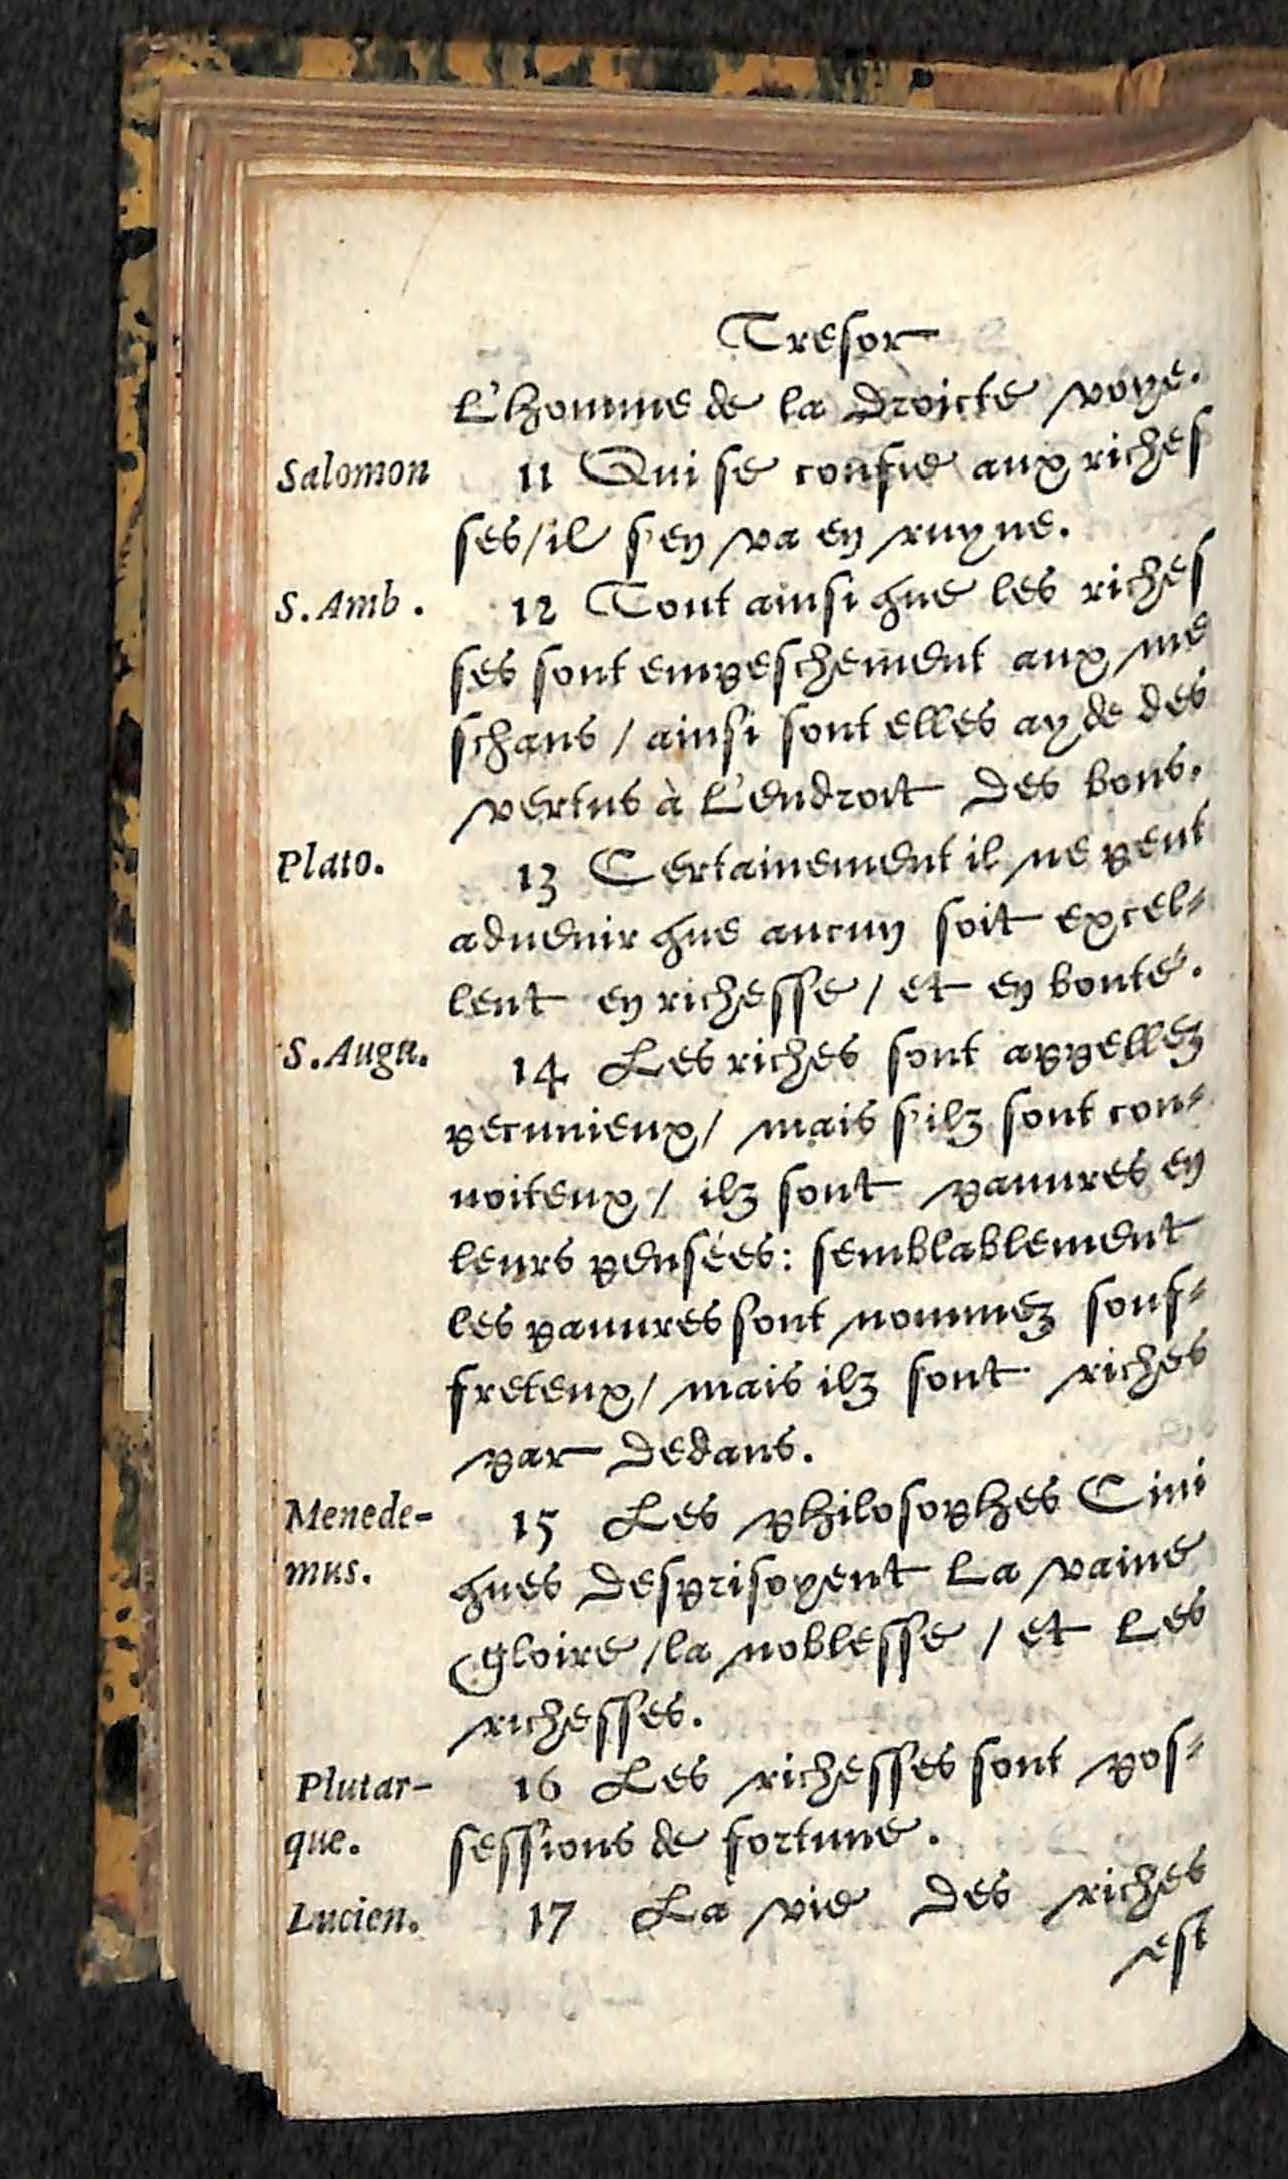 Tresor
L'homme de la droicte voye.
Salomon 11 Qui se confie aux riches
ses/il s'en va en ruyne.
S. Amb. 12 Tout ainsi que les riches
ses sont empeschement aux me
schans / ainsi sont elles ayde des
vertus à l'endroit des bons.
Plato. 13 Certainement il ne peut
aduenir que aucun soit excel-
lent en richesse / et en bonté.
S. Augu. 14 Les riches sont appellez
pecunieux/ mais s'ilz sont con-
uoiteux / ilz sont pauures en
leurs pensées: semblablement
les pauures sont nommez souf-
freteux/ mais ilz sont riches
par dedans.
Menede- 15 Les philosophes Cini
mus. ques desprisoyent la vaine
gloire /la noblesse / et les
richesses.
Plutar- 16 Les richesses sont pos-
que. sessions de fortune.
Lucien. 17 La vie des riches
est